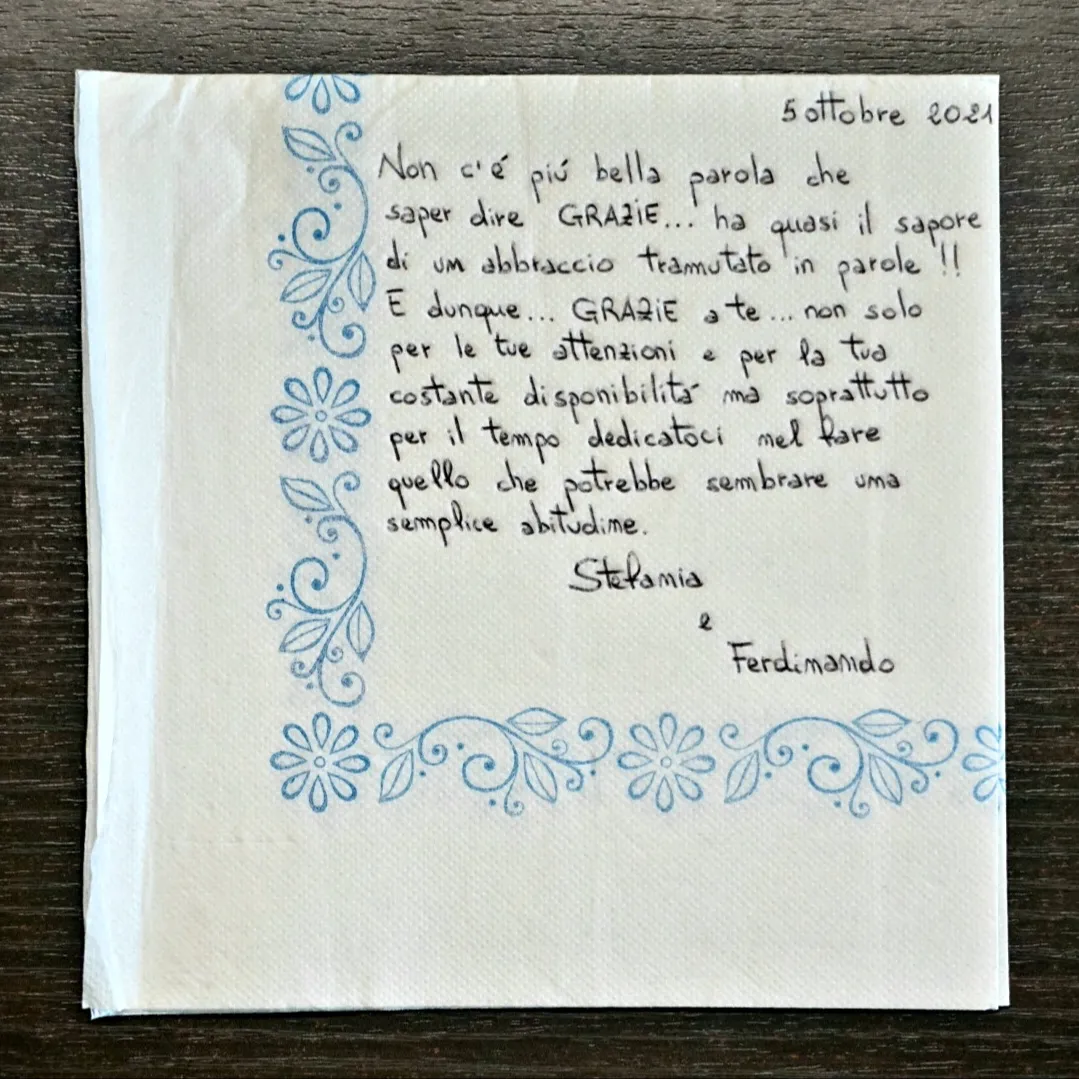 5 ottobre 2021
Non c'é piú bella parola che
saper dire GRAZiE... ha quasi il sapore
di un abbraccio tramutato in parole !!
E dunque... GRAZiE a te... non solo
per le tue attenzioni e per la tua
costante disponibilitá ma soprattutto
per il tempo dedicatoci nel fare
quello che potrebbe sembrare una
semplice abitudine.
Stefania
e
Ferdinando